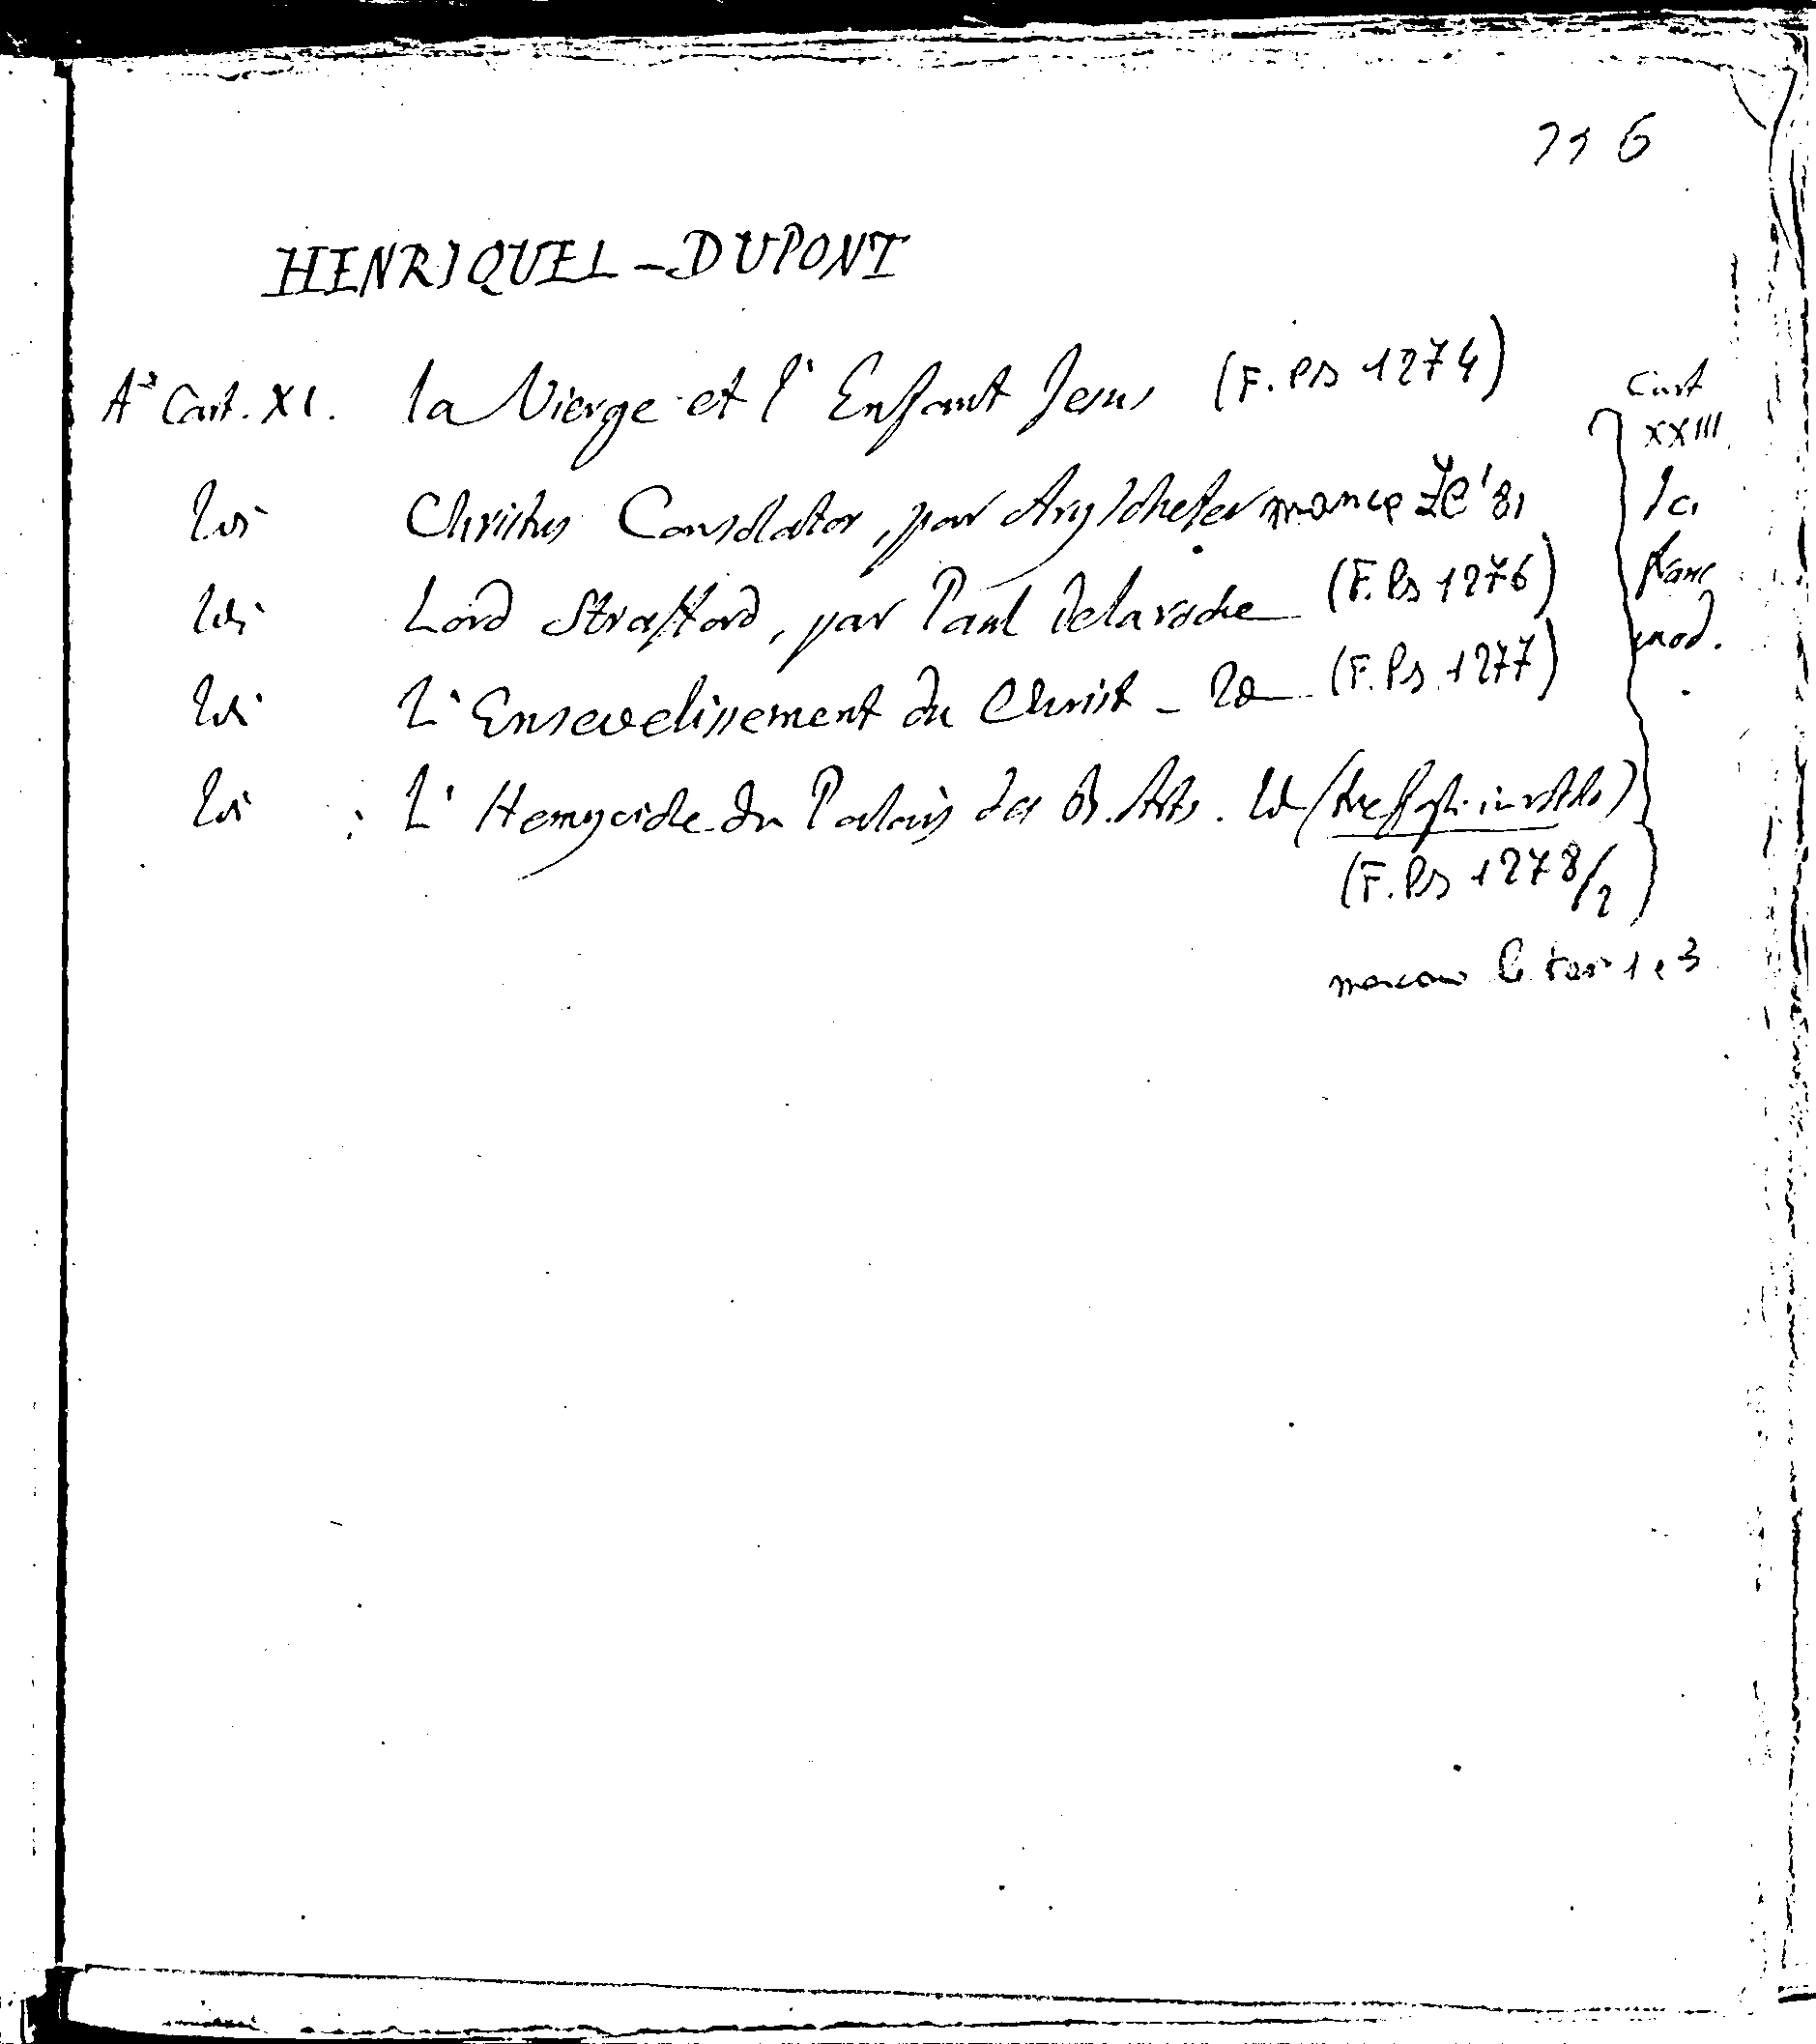 HENRIQUEL-DUPONT
A³ Cart. XI. la Vierge et l'Enfant Jesus (F. PS 1274)
Ivi Christus Consolator, par Ary Scheffer manca
Ivi Lord Strafford, par Paul Delaroche (F. PS 1276)
Ivi L'Ensevelissement du Christ - Id (F. PS 1277)
Ivi L'Hemycicle du Palais des B. Arts. Id (tre fogli
(F. PS 1278/2)
1 e 3
Cart
XXIII
Sc.
franc
mod.